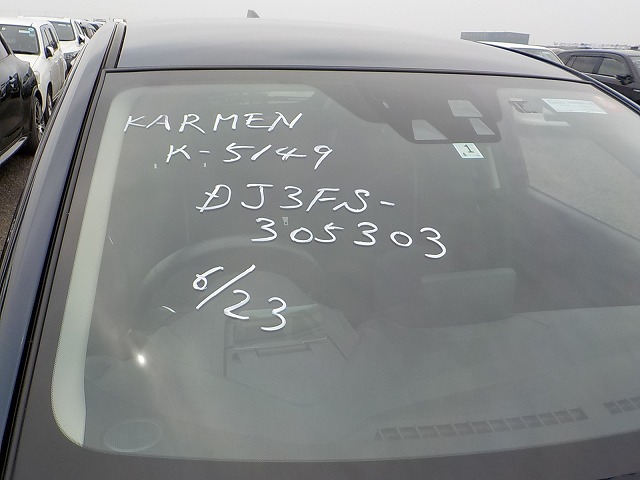 KARMEN
K-5149
DJ3FS-
305303
6/23
1